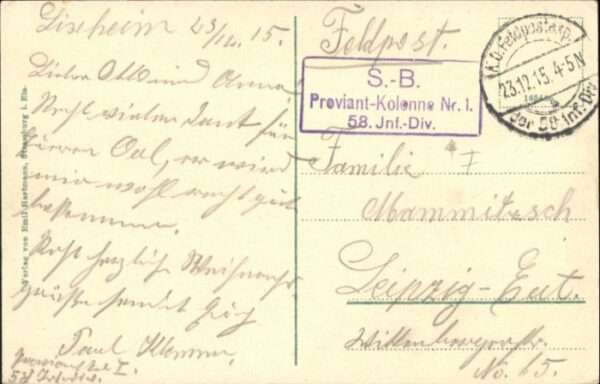 Lixheim 23/12. 15.
Liebe Otto und Anna!
Recht vielen Dank für
Euren Aal, er wird
mir wohl recht gut
bekommen.
Recht herzliche Weihnachts-
grüße sendet Euch
Paul Klemmer.
Proviant Kol. I.
58 Inf. Div.
Verlag von Emil Hartmann, Strassburg i. Els.
Feldpost.
S.-B.
Proviant-Kolonne Nr. I.
58. Jnf.-Div.
K.D. Feldpostexp.
23.12.15. 4-5N
der 58 Inf-Div
Familie F
Mammitzsch
Leipzig-Eut.
Wittenbergerstr.
No. 65.